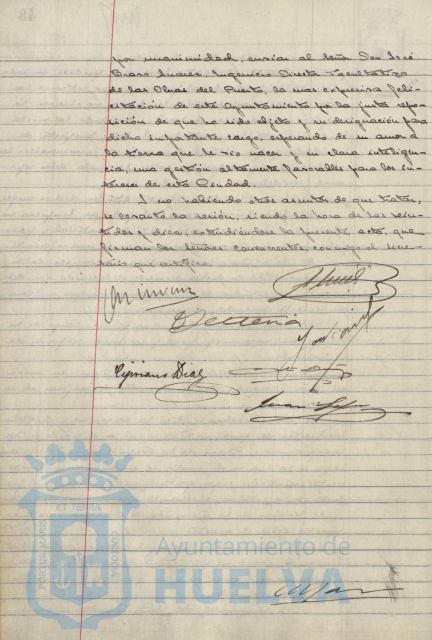 por unanimidad, enviar al Señor Don José
Bravo Suárez, Ingeniero Director Facultativo
de las Obras del Puerto, la mas expresiva feli-
citación de este Ayuntamiento por la justa repo-
sición de que ha sido objeto y su designación para
dicho importante cargo, esperando de su amor a
la tierra que le vio nacer y su clara inteligen-
cia, una gestión altamente favorable para los in-
tereses de esta Ciudad.
Y no habiendo otros asuntos de que tratar,
se levantó la sesión, siendo la hora de las vein-
tidos y diez, extendiéndose la presente acta, que
firman los señores concurrentes, conmigo el Secre-
tario que certifico.
Cipriano Díaz
PORTUS MARIS
ET TERRAE
CUSTODIA
Ayuntamiento de
HUELVA